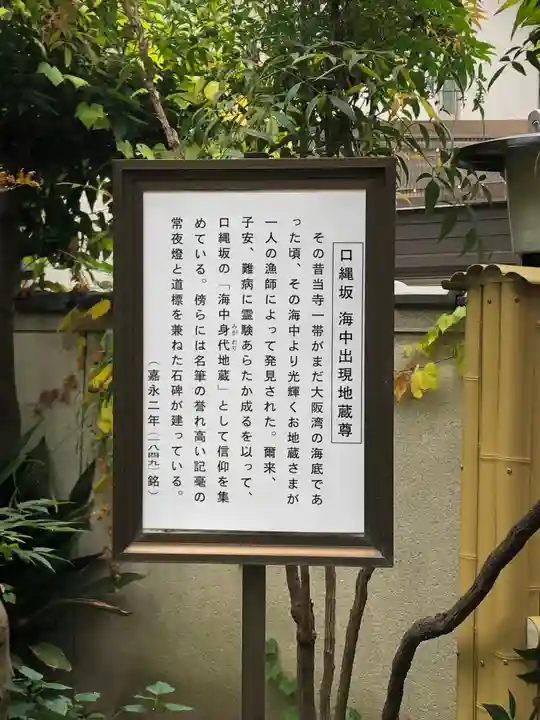 口縄坂 海中出現地蔵尊
その昔当寺一帯がまだ大阪湾の海底であ
った頃、その海中より光輝くお地蔵さまが
一人の漁師によって発見された。爾来、
子安、難病に霊験あらたか成るを以って、
口縄坂の「海中身代地蔵」として信仰を集
みがわり
めている。傍らには名筆の誉れ高い記毫の
常夜燈と道標を兼ねた石碑が建っている。
(嘉永二年(一八四九)銘)